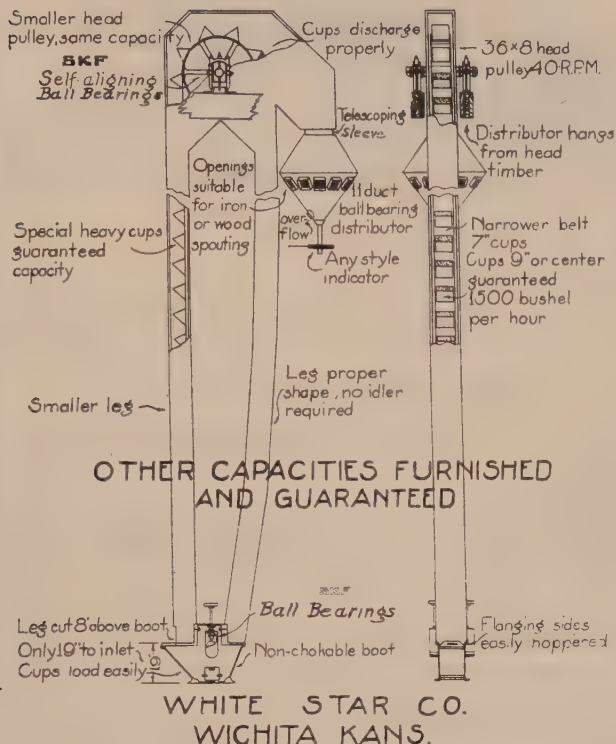 Smaller head
pulley, same capacity
SKF
Self-aligning
Ball Bearings
Cups discharge
properly
36x8 head
pulley 40-R.P.M.
Telescoping
sleeve
Distributor hangs
from head
timber
Openings
suitable
for iron
or wood
spouting
11 duct
ball bearing
distributor
over-
flow
Any style
indicator
Special heavy cups
guaranteed
capacity
Narrower belt
7" cups
Cups 9" or center
guaranteed
1500 bushel
per hour
Leg proper
shape, no idler
required
Smaller leg
OTHER CAPACITIES FURNISHED
AND GUARANTEED
SKF
Ball Bearings
Leg cut 8' above boot
Only 19" to inlet
Cups load easily
19"
Non-chokable boot
Flanging sides
easily hoppered
WHITE STAR CO.
WICHITA KANS.